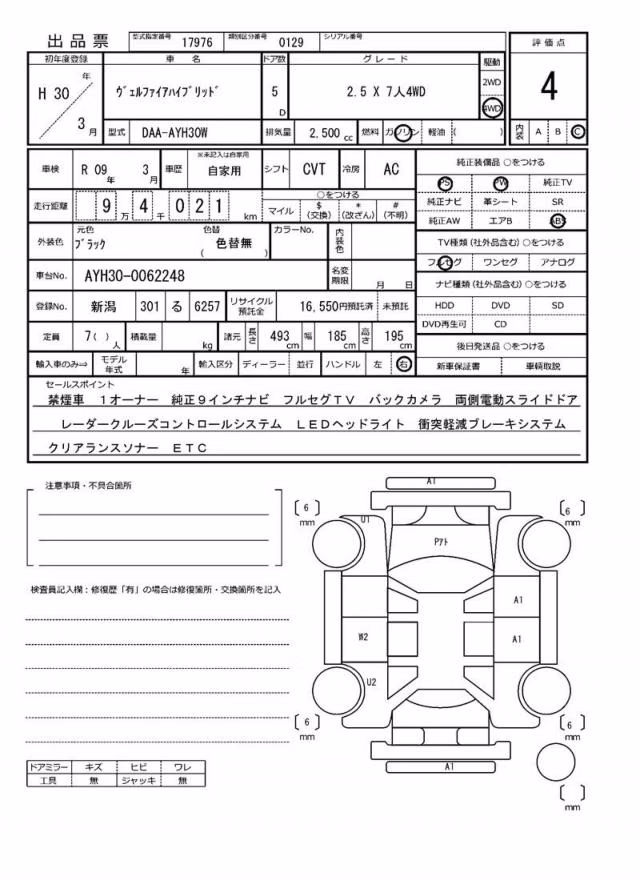 出品票 型式指定番号 17976 類別区分番号 0129 シリアル番号
初年度登録 車名 ドア数 グレード 駆動 評価点
H 30 年 3 月 ヴェルファイアハイブリッド 5 D 2.5 X 7人4WD 2WD 4WD 4
型式 DAA-AYH30W 排気量 2,500 cc 燃料 ガソリン 軽油 ( ) 内装 A B C
車検 R 09 年 3 月 車歴 ※未記入は自家用 自家用 シフト CVT 冷房 AC 純正装備品 ○をつける
PS PW 純正TV
走行距離 9 万 4 千 0 2 1 km ○をつける マイル $ (交換) * (改ざん) # (不明) 純正ナビ 革シート SR
純正AW エアB ABS
外装色 元色 ブラック 色替 色替無 ( ) カラーNo. 内装色 TV種類 (社外品含む) ○をつける
フルセグ ワンセグ アナログ
車台No. AYH30-0062248 名変期限 月 日 ナビ種類 (社外品含む) ○をつける
登録No. 新潟 301 る 6257 リサイクル預託金 16,550円預託済 未預託 HDD DVD SD
DVD再生可 CD
定員 7( ) 人 積載量 kg 諸元 長さ 493 cm 幅 185 cm 高さ 195 cm 後日発送品 ○をつける
輸入車のみ⇒ モデル年式 年 輸入区分 ディーラー 並行 ハンドル 左 右 新車保証書 車輌取説
セールスポイント
禁煙車 1オーナー 純正9インチナビ フルセグTV バックカメラ 両側電動スライドドア
レーダークルーズコントロールシステム LEDヘッドライト 衝突軽減ブレーキシステム
クリアランスソナー ETC
注意事項・不具合箇所
A1
6 mm U1 6 mm
Pアト
検査員記入欄：修復歴「有」の場合は修復箇所・交換箇所を記入
A1
W2 A1
U2
6 mm 6 mm
A1
ドアミラー キズ ヒビ ワレ
工具 無 ジャッキ 無
mm